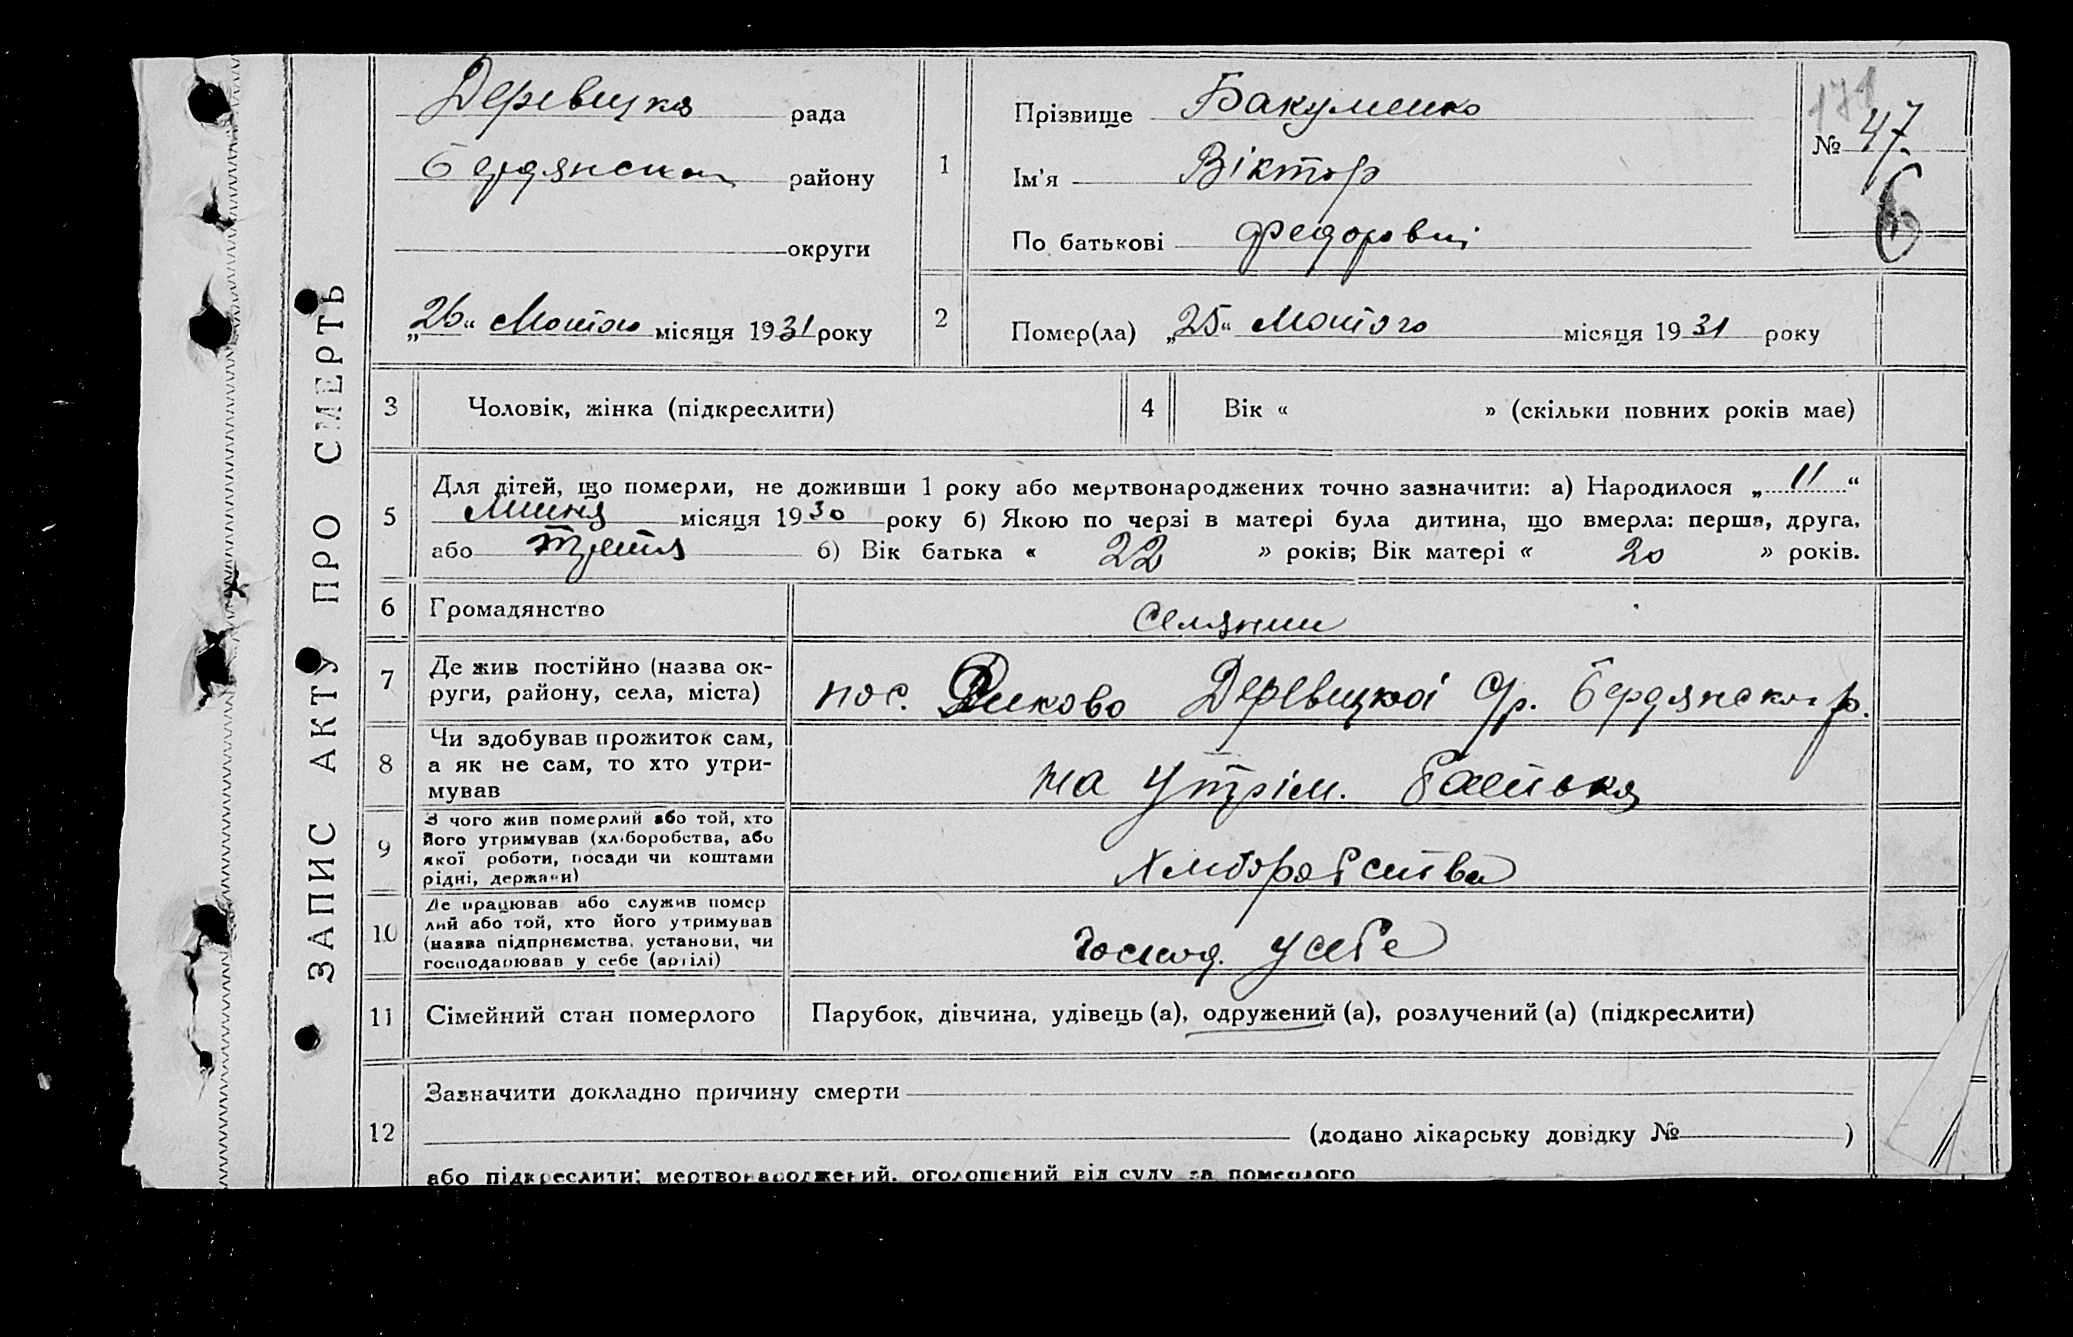 ЗАПИС АКТУ ПРО СМЕРТЬ
Деревецка рада
Бердянськ району
округи
„26“ Лютого місяця 1931 року
1
Прізвище Бакуменко
Ім'я Віктор
По батькові Федорович
171
№ 47
6
2
Помер(ла) „25“ Лютого місяця 1931 року
3 Чоловік, жінка (підкреслити)
4 Вік « » (скільки повних років має)
5
Для дітей, що померли, не доживши 1 року або мертвонароджених точно зазначити: а) Народилося „11“
Липня місяця 1930 року б) Якою по черзі в матері була дитина, що вмерла: перша, друга,
або третя б) Вік батька « 22 » років; Вік матері « 20 » років.
6 Громадянство Селянин
7
Де жив постійно (назва ок-
руги, району, села, міста)
пос. Риково Деревецкої с/р. Бердянськ р.
8
Чи здобував прожиток сам,
а як не сам, то хто утри-
мував
на утрім. батька
9
З чого жив померлий або той, хто
його утримував (хліборобства, або
якої роботи, посади чи коштами
рідні, держави)
Хліборобства
10
Де працював або служив помер
лий або той, хто його утримував
(назва підприємства, установи, чи
господарював у себе (артілі)
Господ. у себе
11 Сімейний стан померлого Парубок, дівчина, удівець (а), одружений (а), розлучений (а) (підкреслити)
12
Зазначити докладно причину смерти
(додано лікарську довідку № )
або підкреслити: мертвонароджений, оголошений від суду за померлого